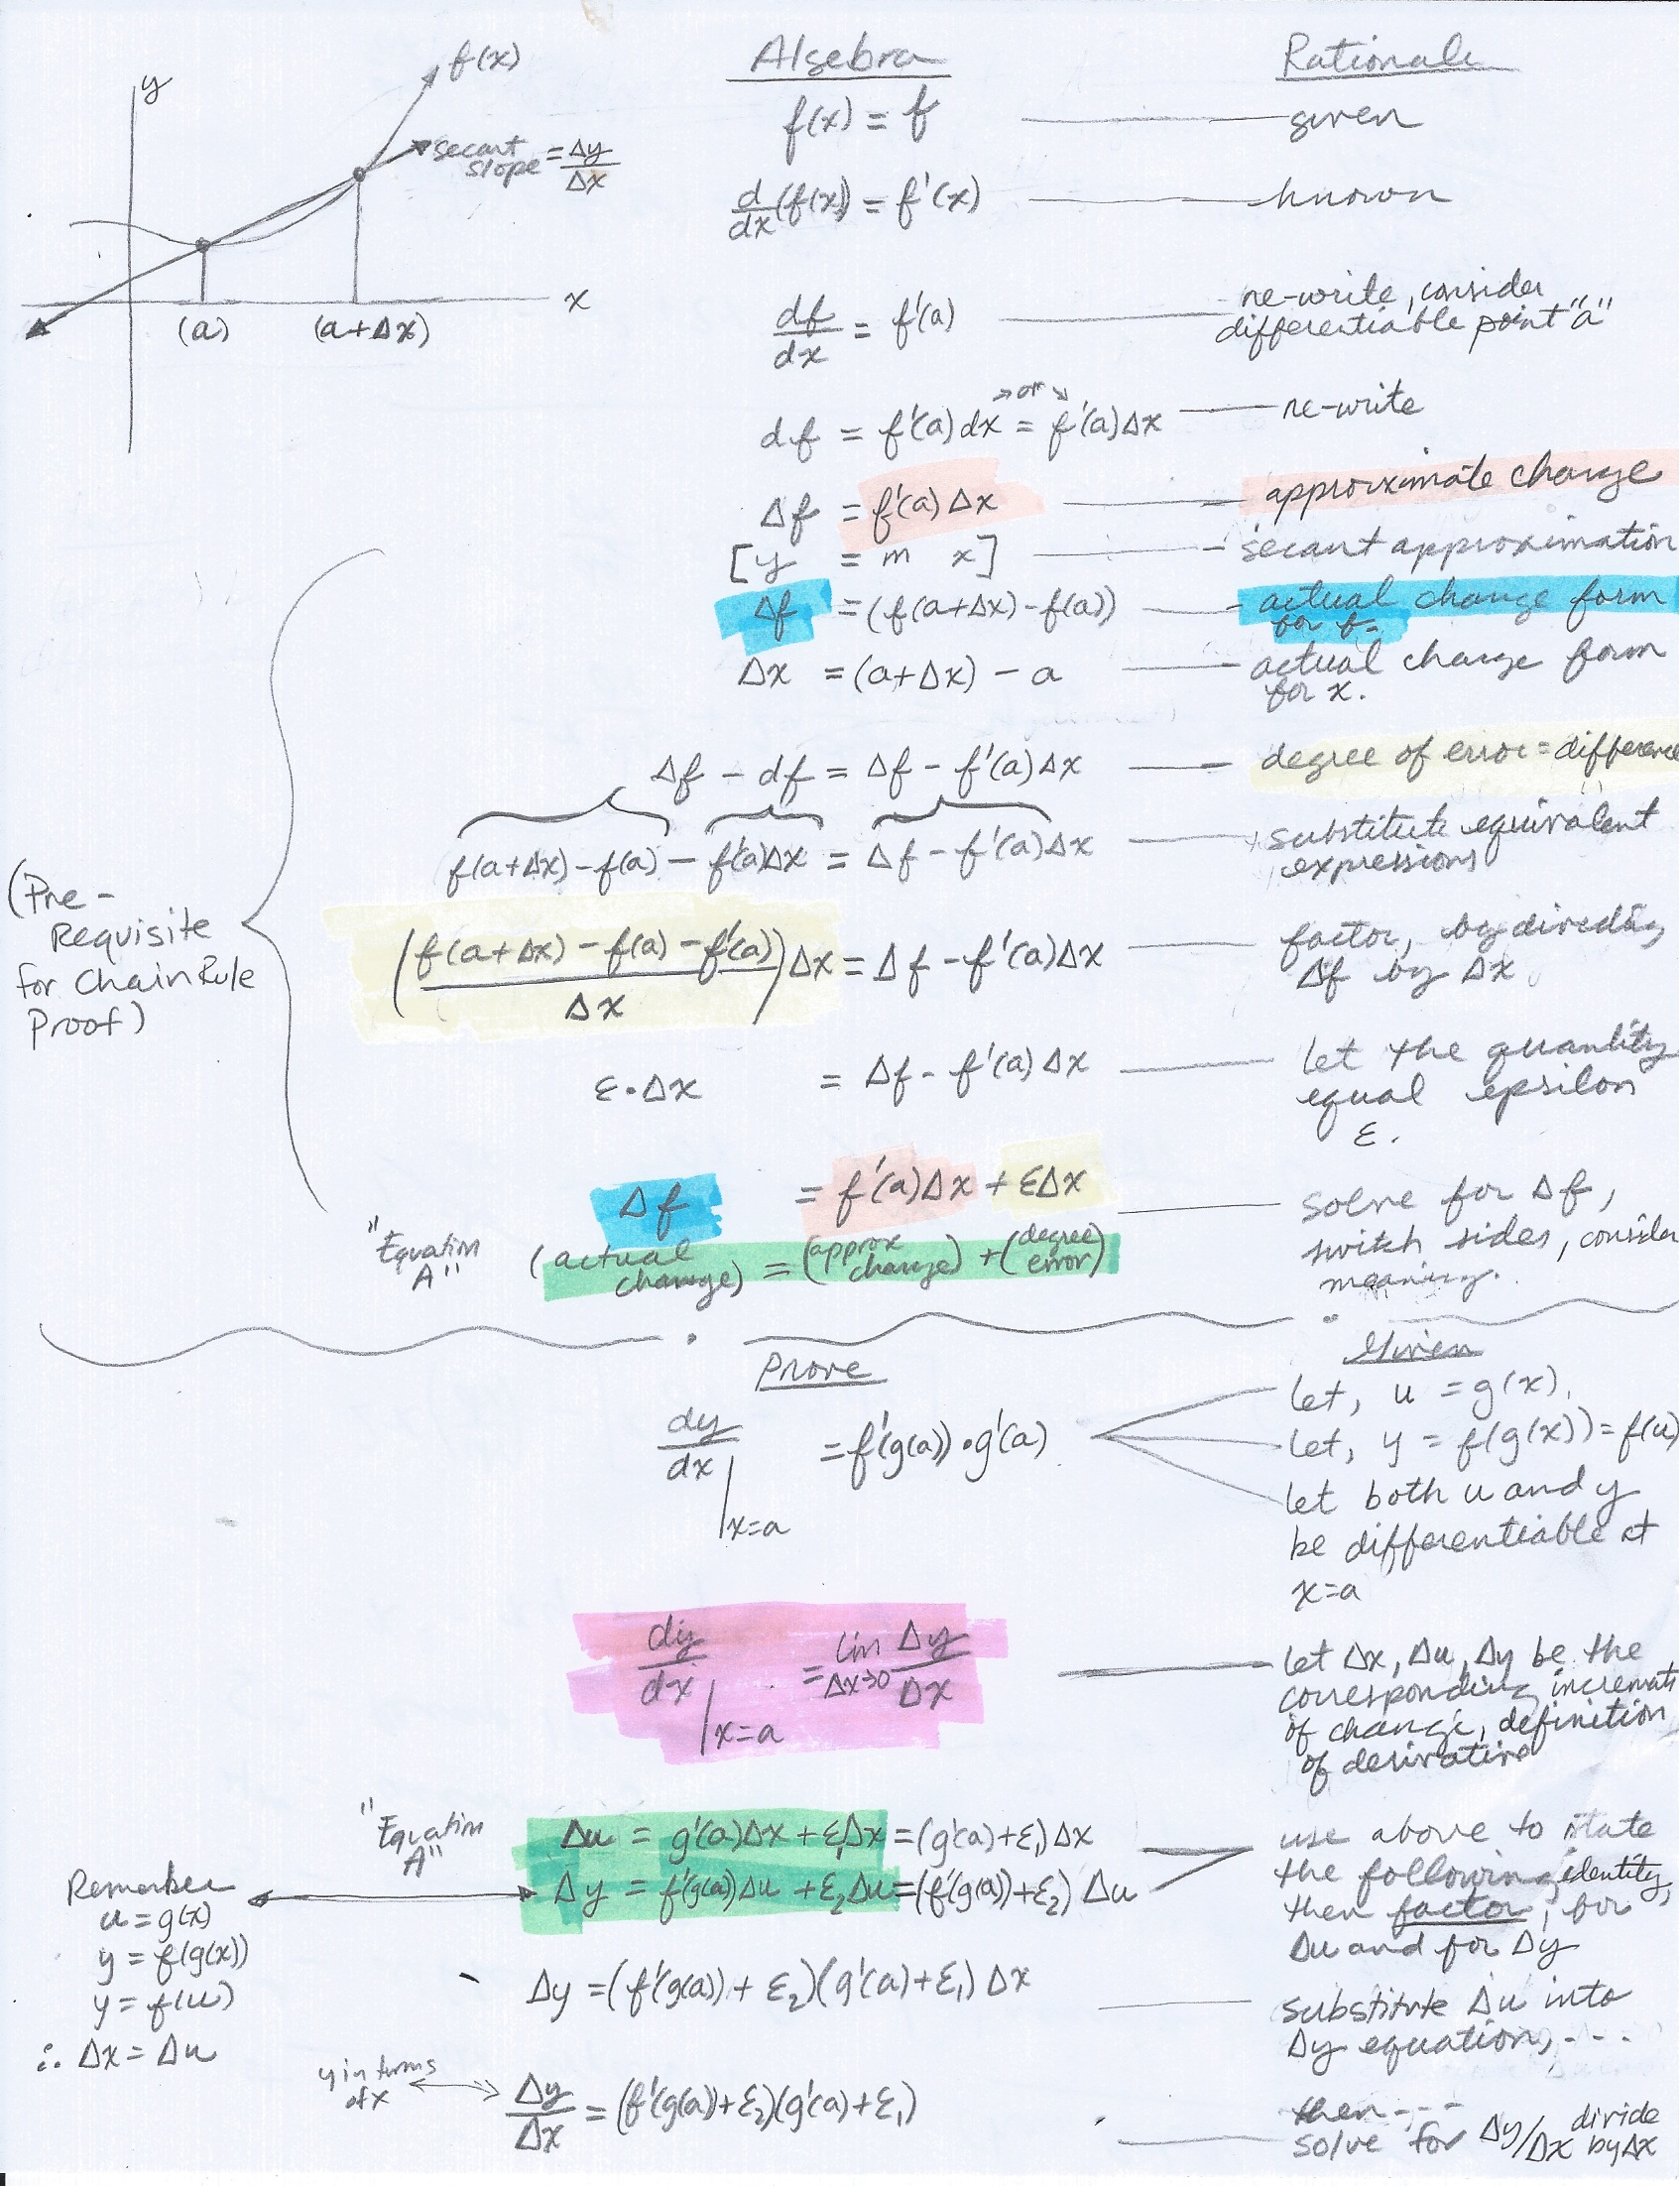 y
f(x)
secant
slope = Δy/Δx
x
(a)
(a+Δx)
Algebra
Rationale
f(x) = f
given
d/dx (f(x)) = f'(x)
known
df/dx = f'(a)
re-write, consider
differentiable point "a"
→ or ↘
df = f'(a) dx = f'(a)Δx
re-write
Δf = f'(a) Δx
approximate change
[y = m x]
secant approximation
Δf = (f(a+Δx) - f(a))
actual change form
for f.
Δx = (a+Δx) - a
actual change form
for x.
Δf - df = Δf - f'(a) Δx
degree of error = difference
f(a+Δx) - f(a) - f'(a)Δx = Δf - f'(a)Δx
substitute equivalent
expressions
(Pre-
Requisite
for Chain Rule
Proof)
((f(a+Δx) - f(a) - f'(a))/Δx) Δx = Δf - f'(a)Δx
factor, by dividing
Δf by Δx
ε·Δx = Δf - f'(a) Δx
let the quantity
equal epsilon
ε.
Δf = f'(a)Δx + εΔx
solve for Δf,
switch sides, consider
meaning.
"Equation
A"
(actual change) = (approx change) + (degree error)
Prove
Given
dy/dx |x=a = f'(g(a))·g'(a)
let, u = g(x).
let, y = f(g(x)) = f(u)
let both u and y
be differentiable at
x=a
dy/dx |x=a = lim Δx→0 Δy/Δx
let Δx, Δu, Δy be the
corresponding increments
of change, definition
of derivative
"Equation
A"
Δu = g'(a)Δx + ε₁Δx = (g'(a)+ε₁) Δx
Δy = f'(g(a))Δu + ε₂Δu = (f'(g(a))+ε₂) Δu
use above to state
the following identity,
then factor, for
Δu and for Δy
Remember
u = g(x)
y = f(g(x))
y = f(u)
∴ Δx = Δu
Δy = (f'(g(a)) + ε₂)(g'(a)+ε₁) Δx
substitute Δu into
Δy equation, ...
y in terms
of x
Δy/Δx = (f'(g(a))+ε₂)(g'(a)+ε₁)
then ----
solve for Δy/Δx divide
by Δx